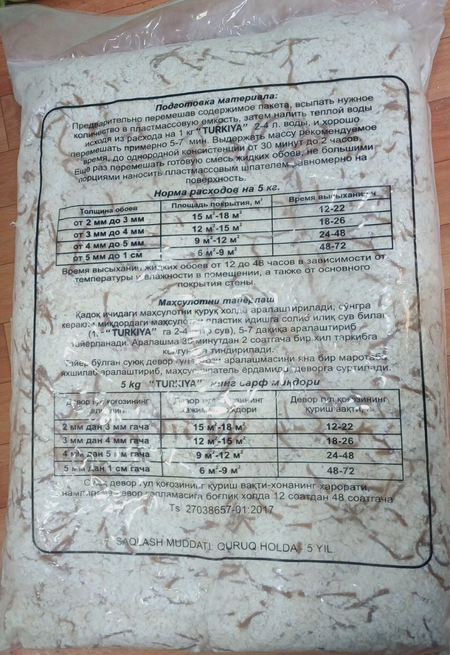 Подготовка материала:
Предварительно перемешав содержимое пакета, всыпать нужное
количество в пластмассовую емкость, затем налить теплой воды
исходя из расхода на 1 кг "TURKIYA" 2-4 л. воды, и хорошо
перемешать примерно 5-7 мин. Выдержать массу рекомендуемое
время, до однородной консистенции от 30 минут до 2 часов,
Еще раз перемешать готовую смесь жидких обоев, не большими
порциями наносить пластмассовым шпателем, равномерно на
поверхность.
Норма расходов на 5 кг.
Толщина обоев Площадь покрытия, м² Время высыхания
от 2 мм до 3 мм 15 м²-18 м² 12-22
от 3 мм до 4 мм 12 м²-15 м² 18-26
от 4 мм до 5 мм 9 м²-12 м² 24-48
от 5 мм до 1 см 6 м²-9 м² 48-72
Время высыхания жидких обоев от 12 до 48 часов в зависимости от
температуры и влажности в помещении, а также от основного
покрытия стены.
Маҳсулотни тайёрлаш
Қадоқ ичидаги маҳсулотни қуруқ холда аралаштирилади, сўнгра
керакли миқдордаги маҳсулотни пластик идишга солиб илиқ сув билан
"TURKIYA" га 2-4 сув), 5-7 дақиқа аралаштириб
тайёрланади. Аралашма 30 минутдан 2 соатгача бир хил таркибга
тиндирилади.
бўлган суюқ девор аралашмасини яна бир маротаба
яхшилаб аралаштириб, шпатель ёрдамида деворга суртилади.
5 kg "TURKIYA" нинг сарф миқдори
Девор гул қоғозининг Девор гул қоғозининг Девор гул қоғозининг
қуриш вақти
2 мм дан 3 мм гача 15 м²-18 м² 12-22
3 мм дан 4 мм гача 12 м²-15 м² 18-26
4 мм дан 5 мм гача 9 м²-12 м² 24-48
5 мм дан 1 см гача 6 м²-9 м² 48-72
девор гул қоғозининг қуриш вақти-хонанинг-харорати,
девор қопламасига боғлиқ холда 12 соатдан 48 соатгача
Ts 27038657-01:2017
SAQLASH MUDDATI: QURUQ HOLDA - 5 YIL